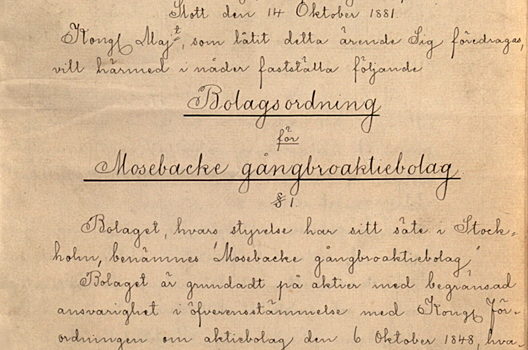 Slott den 14 Oktober 1881.
Kongl Maj:t, som låtit detta ärende Sig föredragas,
vill härmed i nåder fastställa följande
Bolagsordning
för
Mosebacke gångbroaktiebolag
§ 1.
Bolaget, hvars styrelse har sitt säte i Stock=
holm, benämnes "Mosebacke gångbroaktiebolag."
Bolaget är grundadt på aktier med begränsad
ansvarighet i öfverensstämmelse med Kongl För=
ordningen om aktiebolag den 6 Oktober 1848, hva=